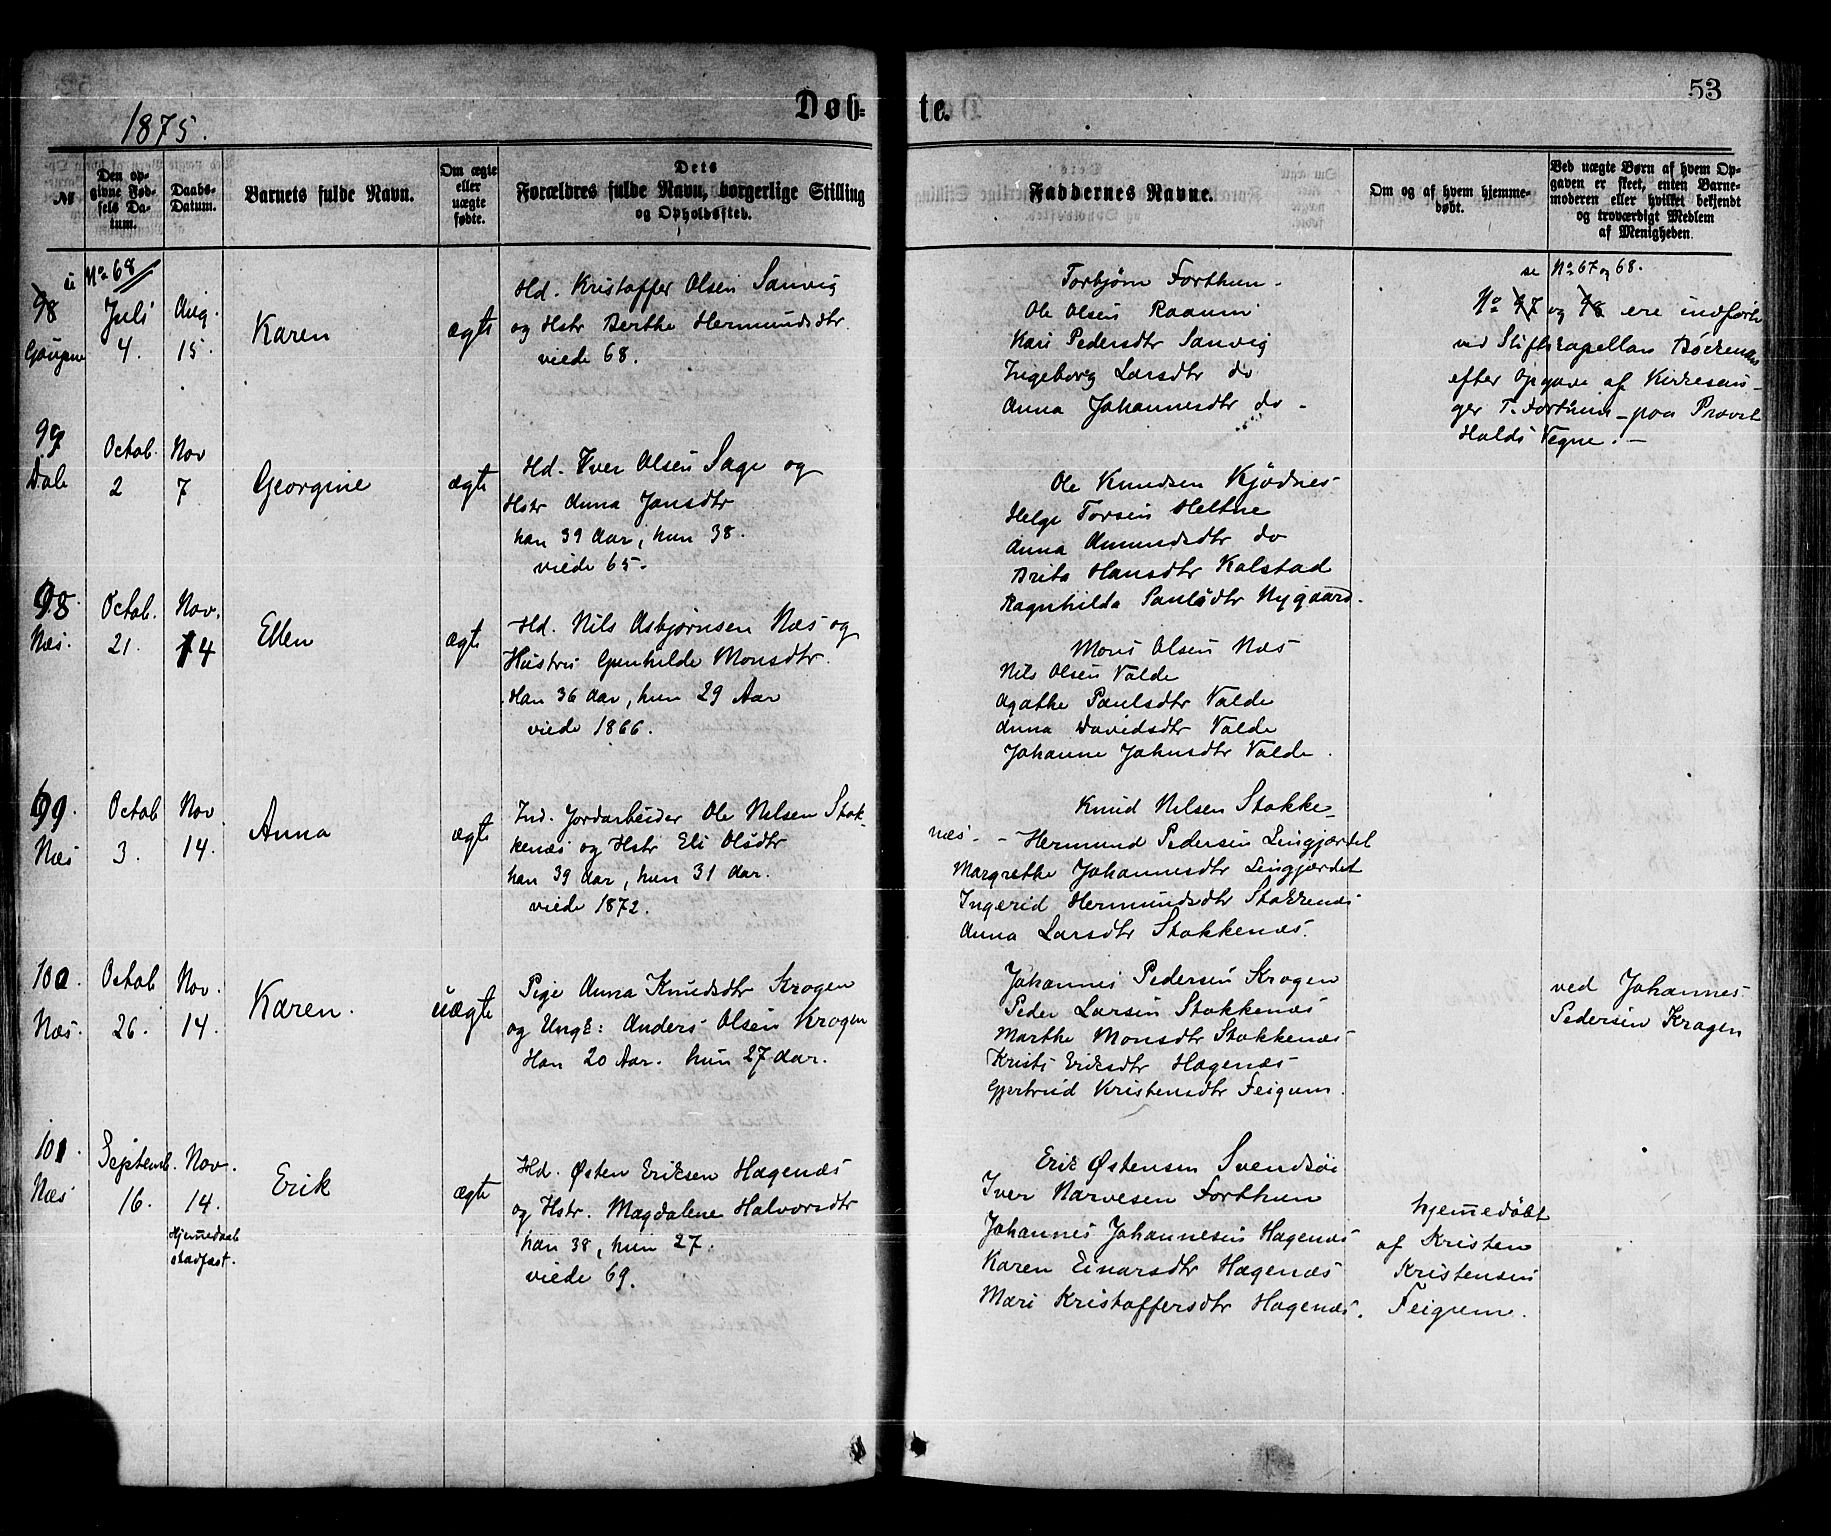 1875.
Døb-
te.
53
Nº
Den op-
givne Fød-
sels Da-
tum.
Daabs-
Datum.
Barnets fulde Navn.
Om ægte
eller
uægte
fødte.
Dets
Forældres fulde Navn, borgerlige Stilling
og Opholdssted.
Faddernes Navne.
Om og af hvem hjemme-
døbt.
Ved uægte Børn af hvem Op-
gaven er skeet, enten Barne-
moderen eller hvilket bekjendt
og troværdigt Medlem
af Menigheden.
No 68
98
Gaupne
Juli
4.
Aug.
15.
Karen
ægte
Hd. Kristoffer Olsen Sanvig
og Hstr Berthe Hermundsdtr.
viede 68.
Torbjørn Forthun -
Ole Olsen
Kari Pedersdtr Sanvig
Ingeborg Larsdtr do
Anna Johannesdtr do -
se No 67 og 68.
No 97 og 98 ere indførte
ved Stiftskapellan
efter Opgave af Kirkesan-
ger T. Forthun - paa Provst
Halds Vegne. -
99
Dale
Octob.
2
Nov
7
Georgine
ægte
Hd. Iver Olsen Sage og
Hstr Anna Jansdtr
han 39 Aar, hun 38.
viede 65.
Ole Knudsen Kjødnes
Helge Torsen Heltne
Anna Amundsdtr do
Brita Hansdtr Kalstad
Ragnhilda Paulsdtr Nygaard.
98.
Næs.
Octob.
21.
Nov.
14
Ellen
ægte
Hd. Nils Asbjørnsen Næs og
Hustru Gunhilde Monsdtr.
Han 36 Aar, hun 29 Aar
viede 1866.
Mons Olsen Næs
Nils Olsen Valde
Agathe Paulsdtr Valde
Anna Davidsdtr Valde
Johanne Johnsdtr Valde.
99.
Næs
Octob
3.
Nov
14.
Anna
ægte
Ind. Jordarbeider Ole Nilsen Stok-
kenæs og Hstr Eli Olsdtr
han 39 Aar, hun 31 Aar.
viede 1872.
Knud Nilsen Stokke-
næs - - Hermund Pedersen Lingjærdet
Margrethe Johannesdtr Lingjærdet
Ingerid Hermundsdtr Stokkenæs
Anna Larsdtr Stokkenæs.
100.
Næs.
Octob
26.
Nov.
14.
Karen.
uægte
Pige Anna Knudsdtr Krogen
og Ungk: Anders Olsen Krogen
Han 20 Aar. hun 27 Aar.
Johannes Pedersen Krogen
Peder Larsen Stokkenæs
Marthe Monsdtr Stokkenæs
Kristi Eriksdtr Hagenæs
Gjertrud Kristensdtr Feigum.
ved Johannes
Pedersen Krogen
101.
Næs
Septemb.
16.
Nov.
14.
Hjemmedaab
stadfæst.
Erik
ægte
Hd. Østen Eriksen Hagenæs
og Hstr. Magdalene Halvorsdtr
han 38, hun 27.
viede 69.
Erik Østensen Svendsøi
Iver Narvesen Forthun
Johannes Johannesen Hagenæs
Karen Einarsdtr Hagenæs
Mari Kristoffersdtr Hagenæs.
hjemmedøbt
af Kristen
Kristensen
Feigum.